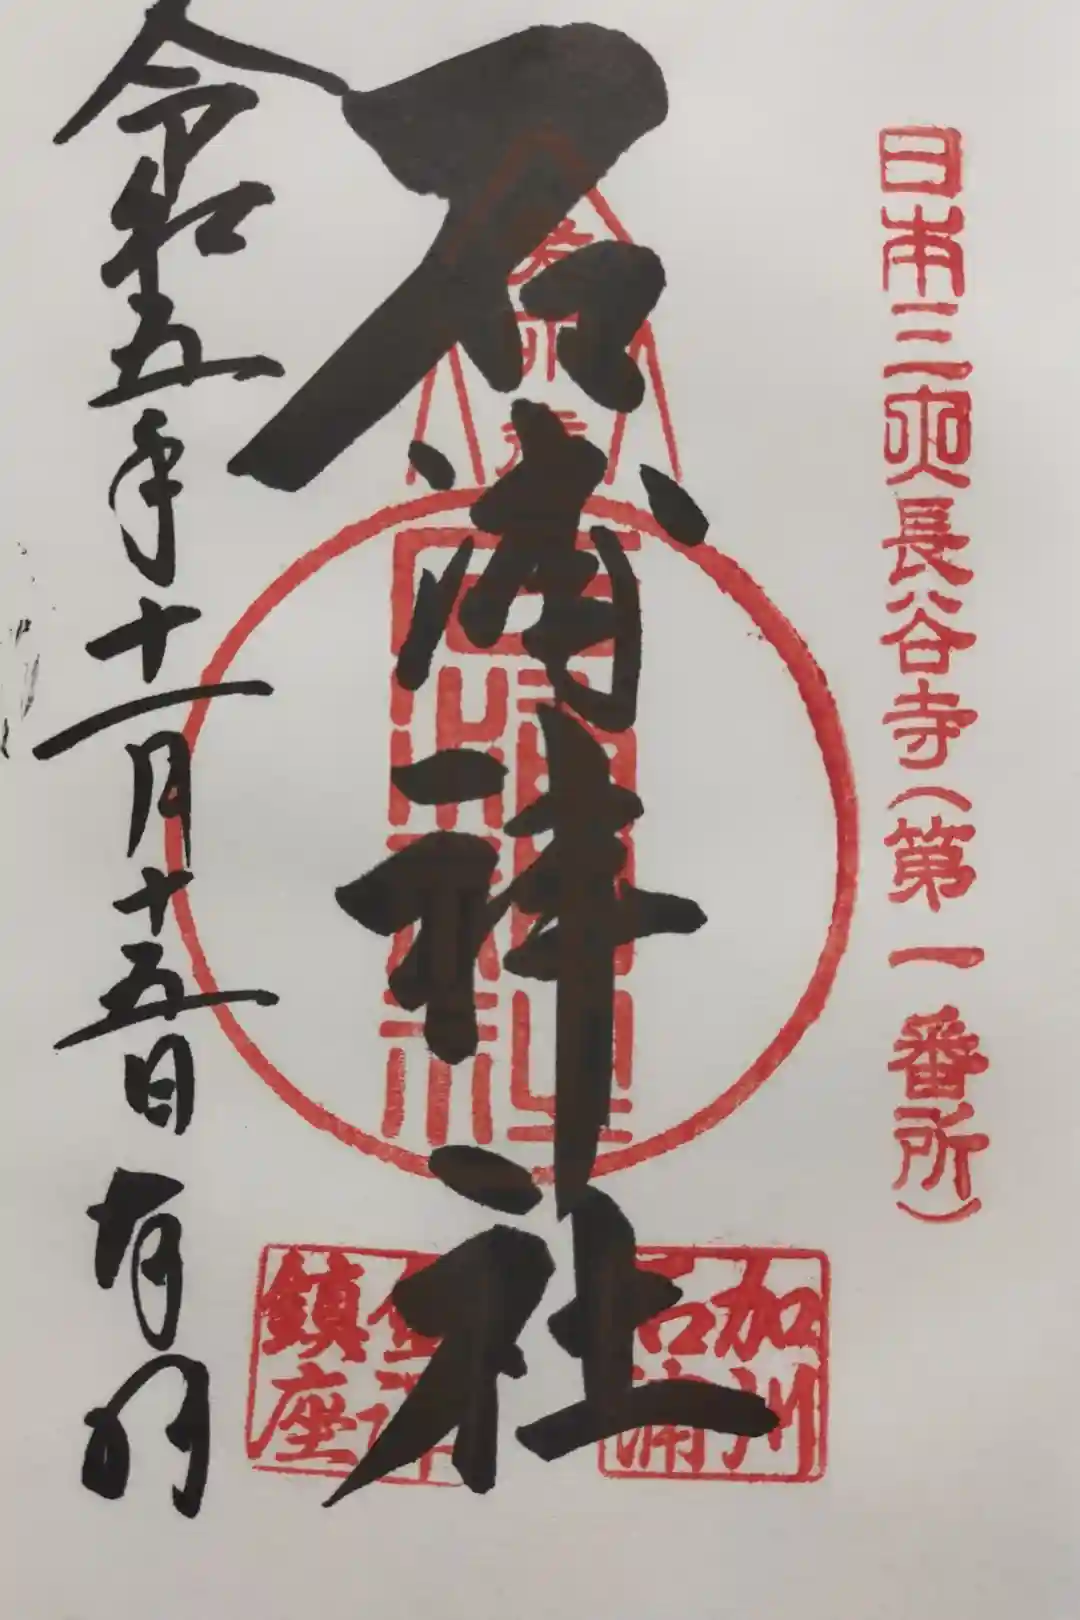 日本三央長谷寺(第一番所)
石浦神社
令和五年十一月十五日
加州
石浦
鎮座